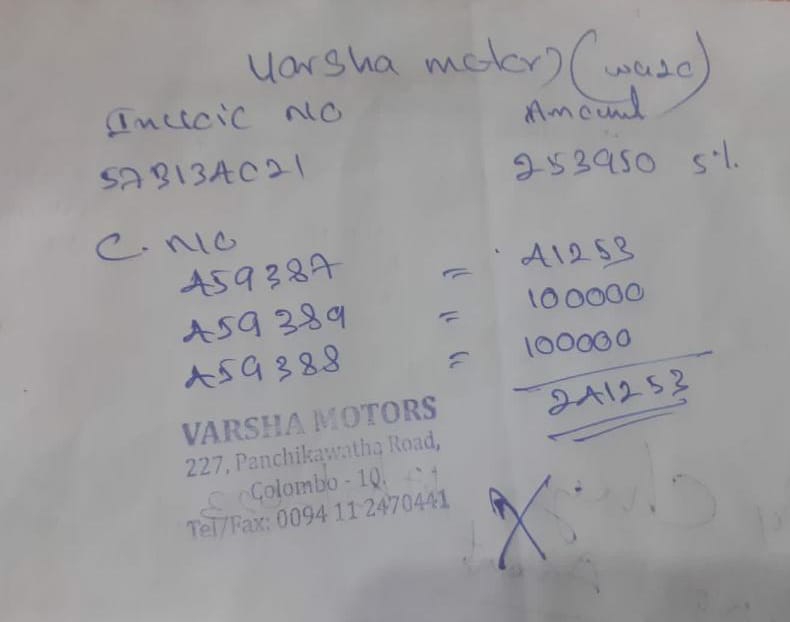 Varsha motors (wase)
Invocic NO Amount
57B134C21 253950 5%
C. NO
459387 = 41253
459389 = 100000
459388 = 100000
241253
VARSHA MOTORS
227, Panchikawatha Road,
Colombo - 10.
Tel/Fax: 0094 11 2470441